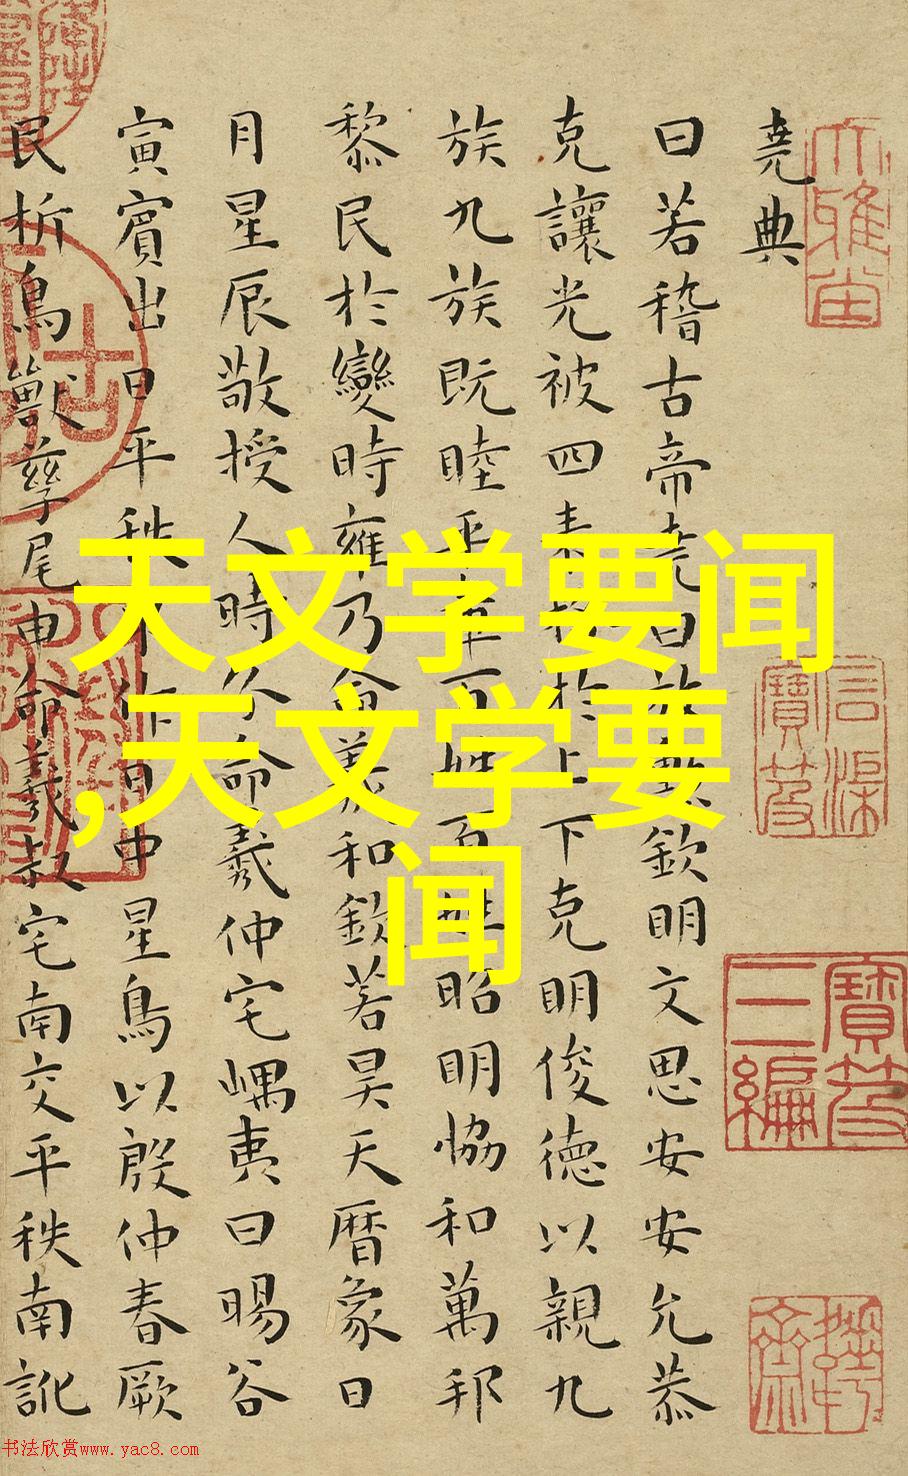 堯典
曰若稽古帝堯曰放勲欽明文思安安允恭
克讓光被四表格於上下克明俊德以親九
族九族既睦平章百姓百姓昭明協和萬邦
黎民於變時雍乃命羲和欽若昊天曆象日
月星辰敬授人時分命羲仲宅嵎夷曰暘谷
寅賓出日平秩作日中星鳥以殷仲春厥
民析鳥獸孳尾申命羲叔宅南交平秩南訛
天文学要闻
,天文学要
闻
大雅
寶笈
三編
寶笈
书法欣赏www.yac8.com